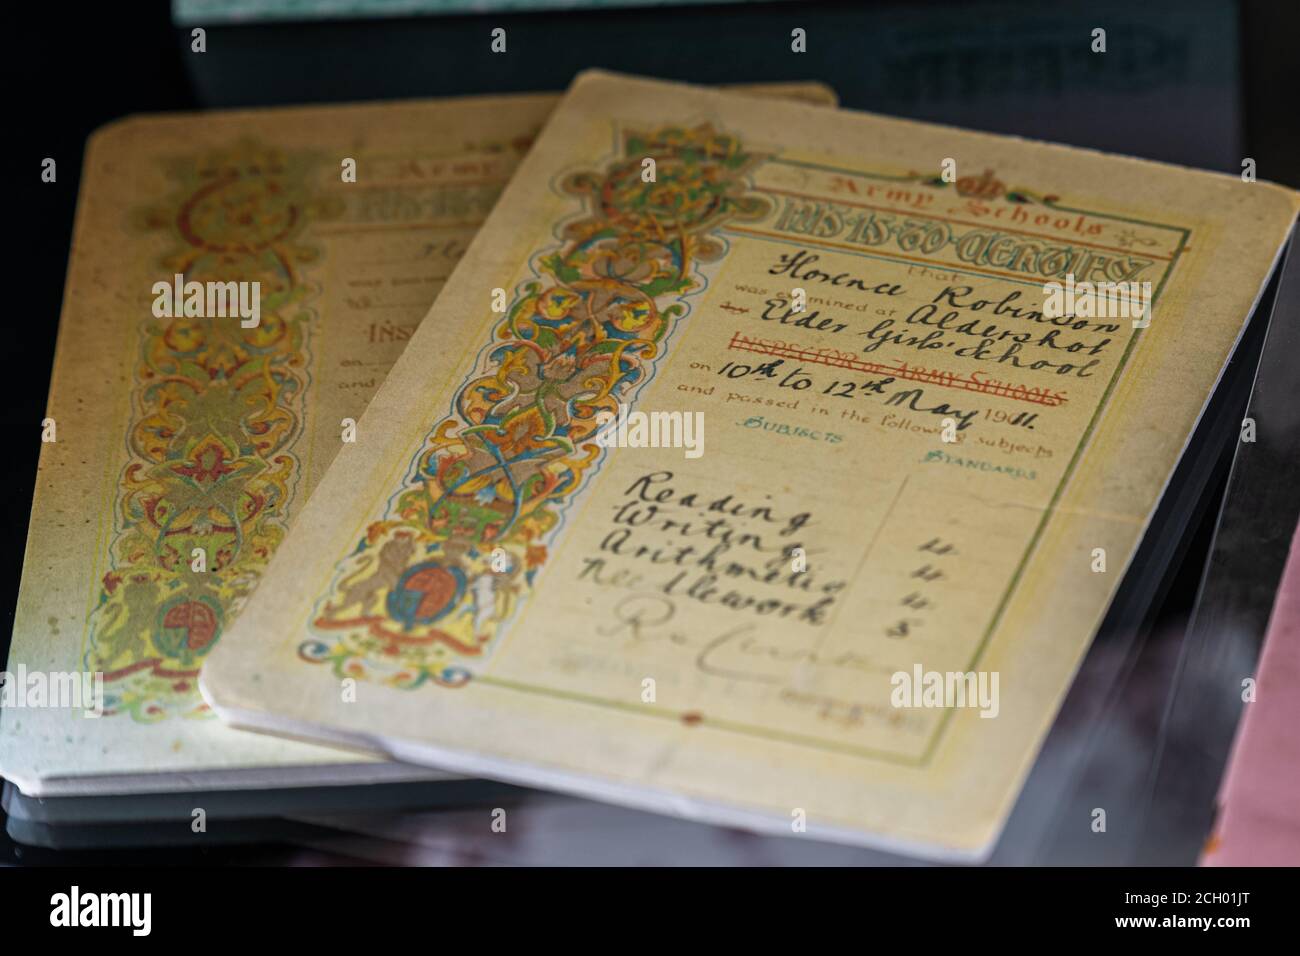 Army Schools
This is to certify
that
Florence Robinson
was examined at Aldershot
by Elder Girls' School
Inspector of Army Schools
on 10th to 12th May 1911.
and passed in the following subjects
Subjects
Standards
Reading 4.
Writing 4.
Arithmetic 4.
Needlework 5
Army
Insp
on
and
alamy
Image ID: 2CH01JT
www.alamy.com